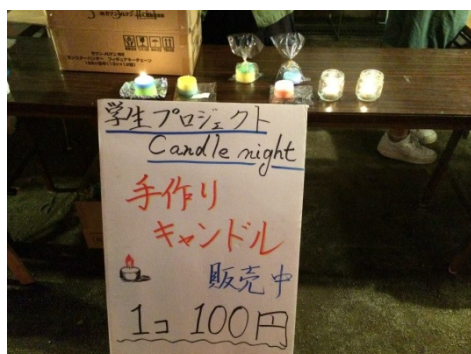 学生プロジェクト
Candle night
手作り
キャンドル
販売中
1コ 100円